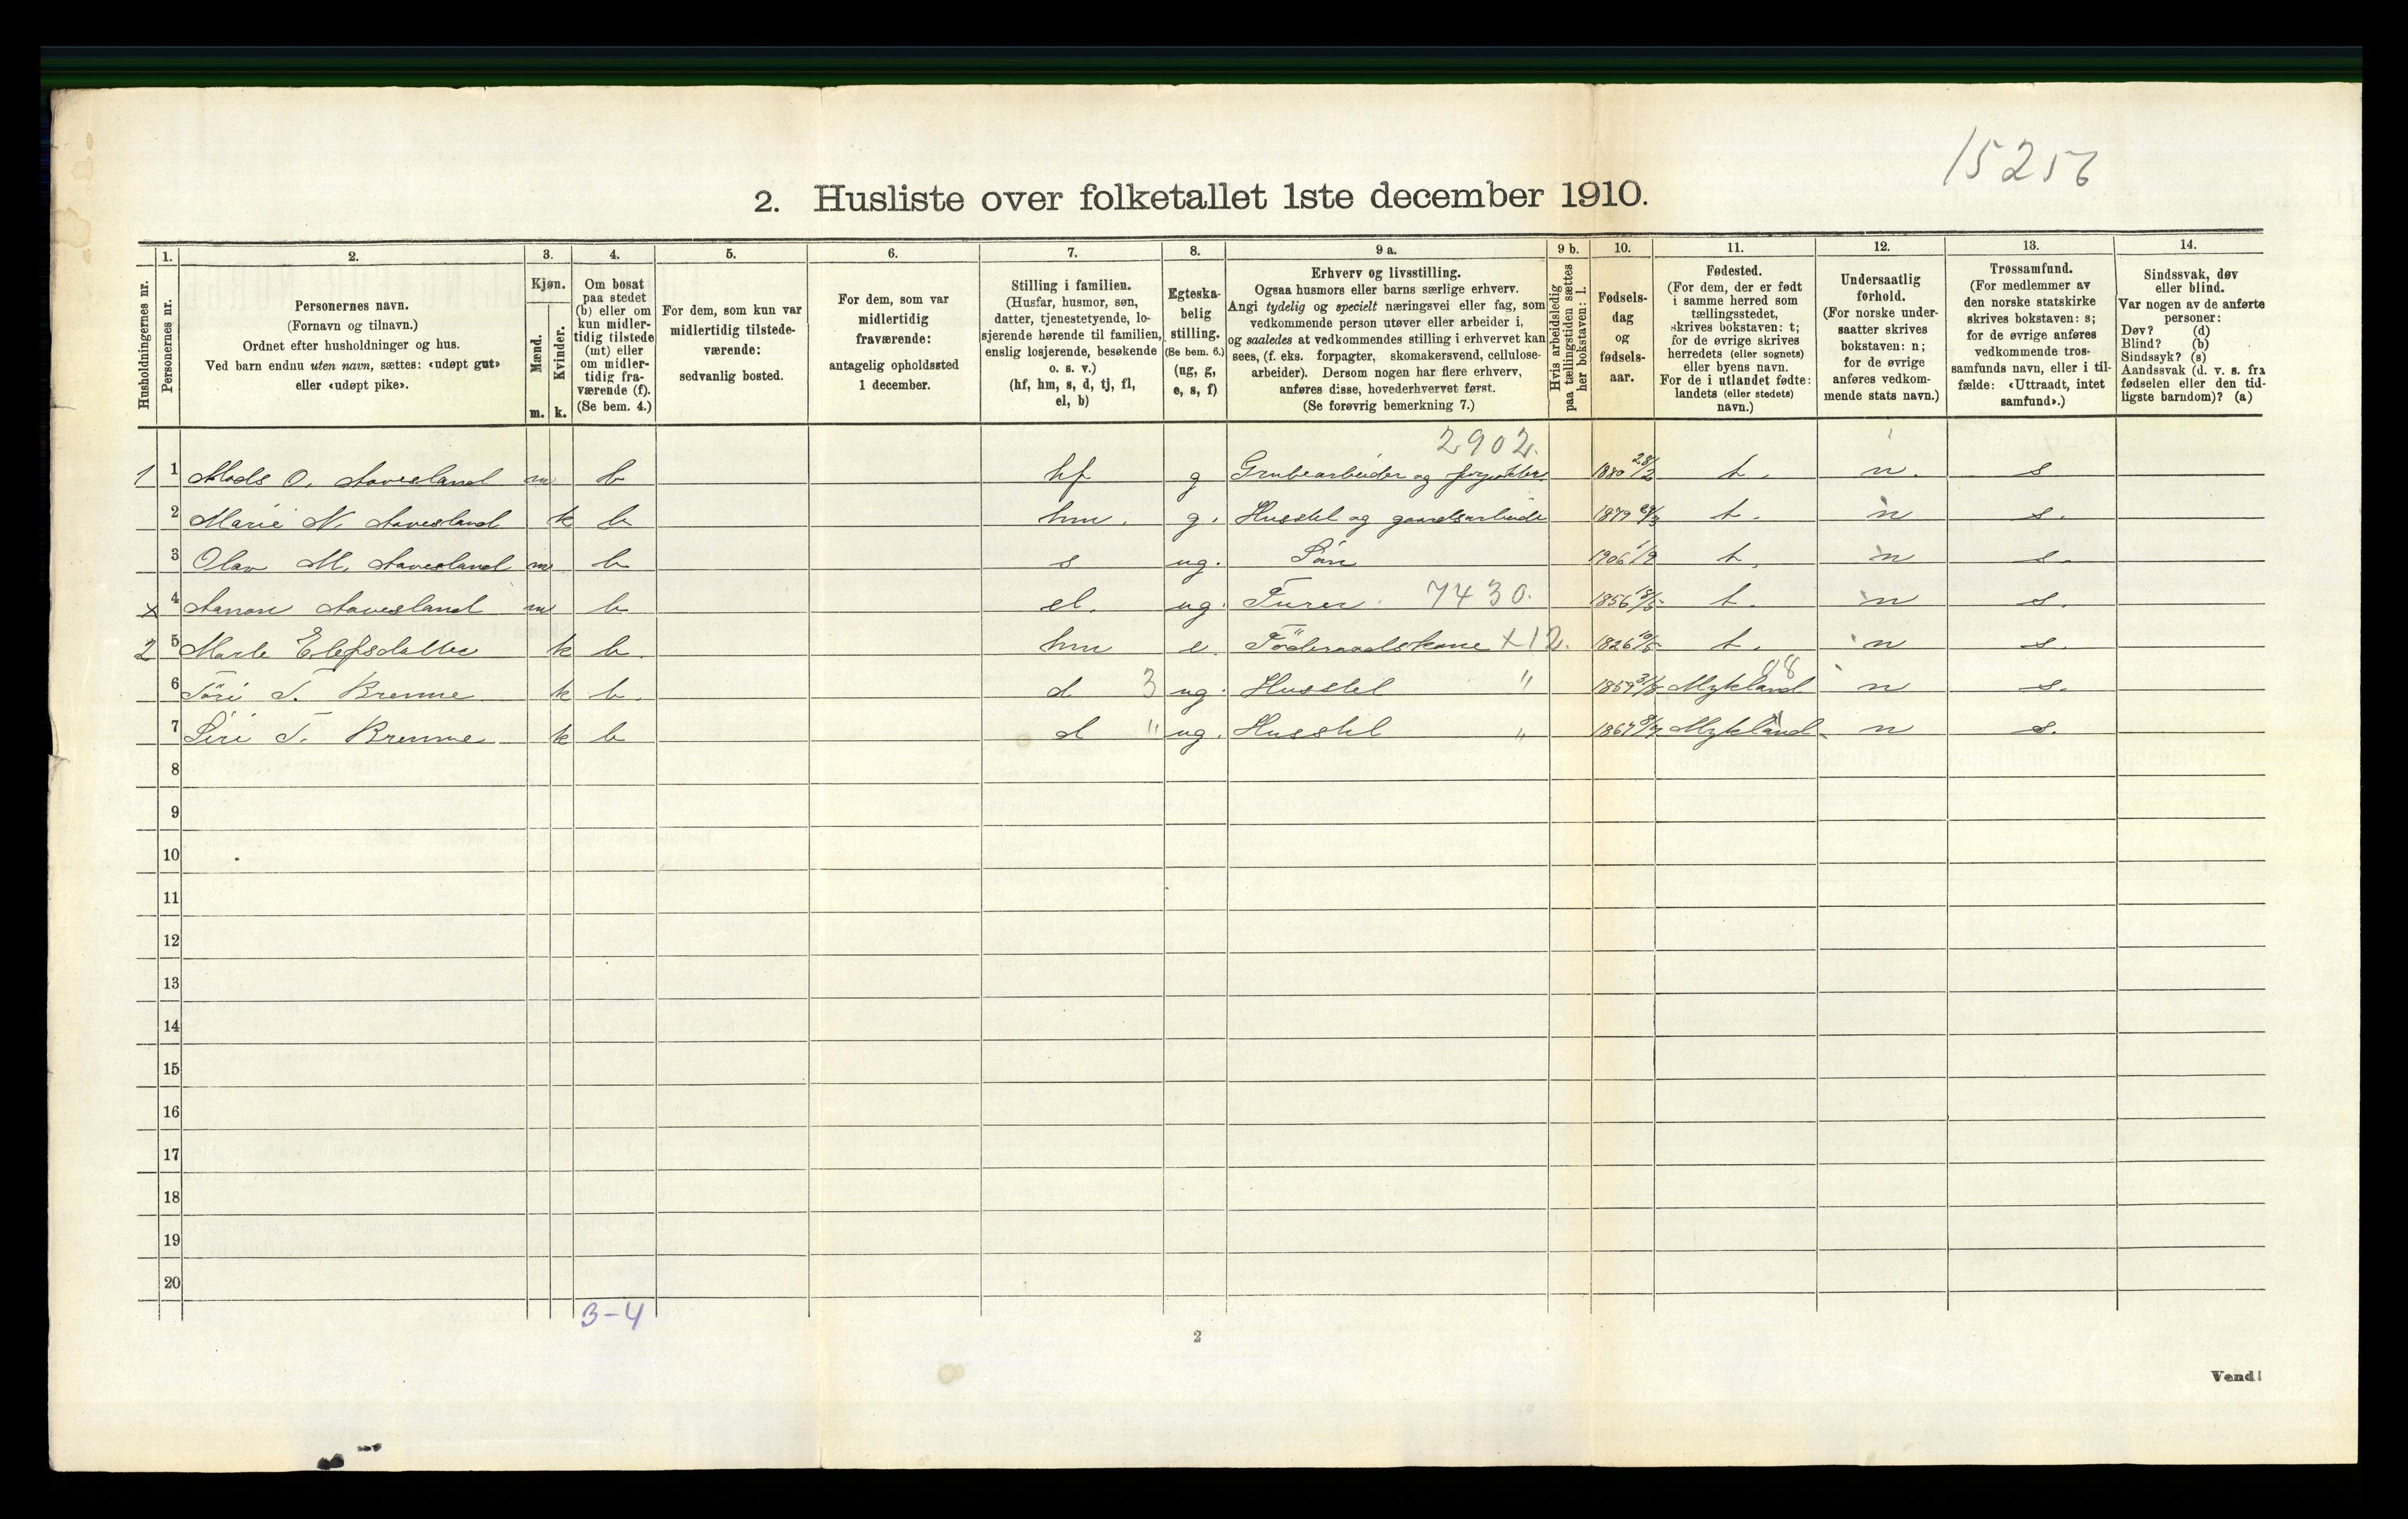 15256
2. Husliste over folketallet 1ste december 1910.
Husholdningernes nr.
1.
Personernes nr.
2.
Personernes navn.
(Fornavn og tilnavn.)
Ordnet efter husholdninger og hus.
Ved barn endnu uten navn, sættes: «udøpt gut»
eller «udøpt pike».
3.
Kjøn.
Mænd.
Kvinder.
m. k.
4.
Om bosat
paa stedet
(b) eller om
kun midler-
tidig tilstede
(mt) eller
om midler-
tidig fra-
værende (f).
(Se bem. 4.)
5.
For dem, som kun var
midlertidig tilstede-
værende:
sedvanlig bosted.
6.
For dem, som var
midlertidig
fraværende:
antagelig opholdssted
1 december.
7.
Stilling i familien.
(Husfar, husmor, søn,
datter, tjenestetyende, lo-
sjerende hørende til familien,
enslig losjerende, besøkende
o. s. v.)
(hf, hm, s, d, tj, fl,
el, b)
8.
Egteska-
belig
stilling.
(Se bem. 6.)
(ug, g,
e, s, f)
9 a.
Erhverv og livsstilling.
Ogsaa husmors eller barns særlige erhverv.
Angi tydelig og specielt næringsvei eller fag, som
vedkommende person utøver eller arbeider i,
og saaledes at vedkommendes stilling i erhvervet kan
sees, (f. eks. forpagter, skomakersvend, cellulose-
arbeider). Dersom nogen har flere erhverv,
anføres disse, hovederhvervet først.
(Se forøvrig bemerkning 7.)
9 b.
Hvis arbeidsledig
paa tællingstiden sættes
her bokstaven: l.
10.
Fødsels-
dag
og
fødsels-
aar.
11.
Fødested.
(For dem, der er født
i samme herred som
tællingsstedet,
skrives bokstaven: t;
for de øvrige skrives
herredets (eller sognets)
eller byens navn.
For de i utlandet fødte:
landets (eller stedets)
navn.)
12.
Undersaatlig
forhold.
(For norske under-
saatter skrives
bokstaven: n;
for de øvrige
anføres vedkom-
mende stats navn.)
13.
Trossamfund.
(For medlemmer av
den norske statskirke
skrives bokstaven: s;
for de øvrige anføres
vedkommende tros-
samfunds navn, eller i til-
fælde: «Uttraadt, intet
samfund».)
14.
Sindssvak, døv
eller blind.
Var nogen av de anførte
personer:
Døv? (d)
Blind? (b)
Sindssyk? (s)
Aandssvak (d. v. s. fra
fødselen eller den tid-
ligste barndom)? (a)
2902.
1 1 Mads O. Aavesland m b hf g Grubearbeider og 1880 28/2 t. n. s
2 Marie N. Aavesland k b hm. g. Husstel og gaardsarbeide 1879 t. n s.
3 Olav M. Aavesland m b s ug. Sön 1906 1/9 t. n s.
x 4 Aanon Aavesland m b. el. ug. 7430. 1856 18/5 t. n s.
2 5 Marte Elefsdatter k b. hm e. Föderaadskone x12. 1826 10/5 t. n s.
6 Töri T. Brenne k b. d 3 ug. Husstel " 1859 31/8 Mykland 98 n s.
7 Siri T. Brenne k b d " ug. Husstel " 1867 Mykland " n s.
8
9
10
11
12
13
14
15
16
17
18
19
20
3-4
2
Vend!